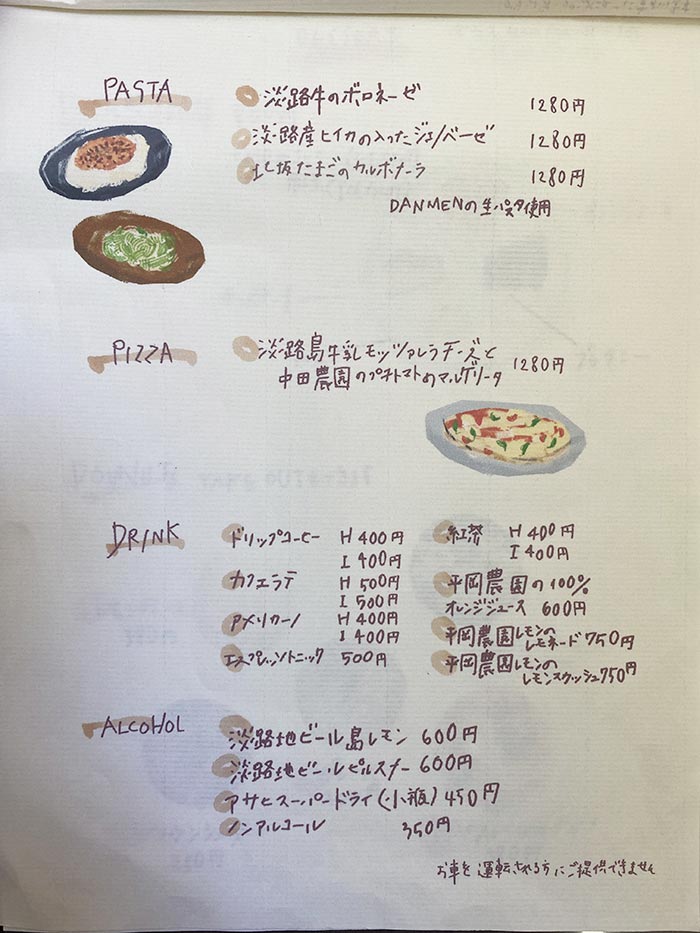 PASTA
淡路牛のボロネーゼ 1280円
淡路産ヒイカの入ったジェノベーゼ 1280円
北坂たまごのカルボナーラ 1280円
DANMENの生パスタ使用
PIZZA
淡路島牛乳モッツァレラチーズと
中田農園のプチトマトのマルゲリータ 1280円
DRINK
ドリップコーヒー H 400円
I 400円
カフェラテ H 500円
I 500円
アメリカーノ H 400円
I 400円
エスプレッソトニック 500円
紅茶 H 400円
I 400円
平岡農園の100%
オレンジジュース 600円
平岡農園レモンの
レモネード 750円
平岡農園レモンの
レモンスカッシュ 750円
ALCOHOL
淡路地ビール島レモン 600円
淡路地ビールピルスナー 600円
アサヒスーパードライ(小瓶) 450円
ノンアルコール 350円
お車を運転される方にご提供できません